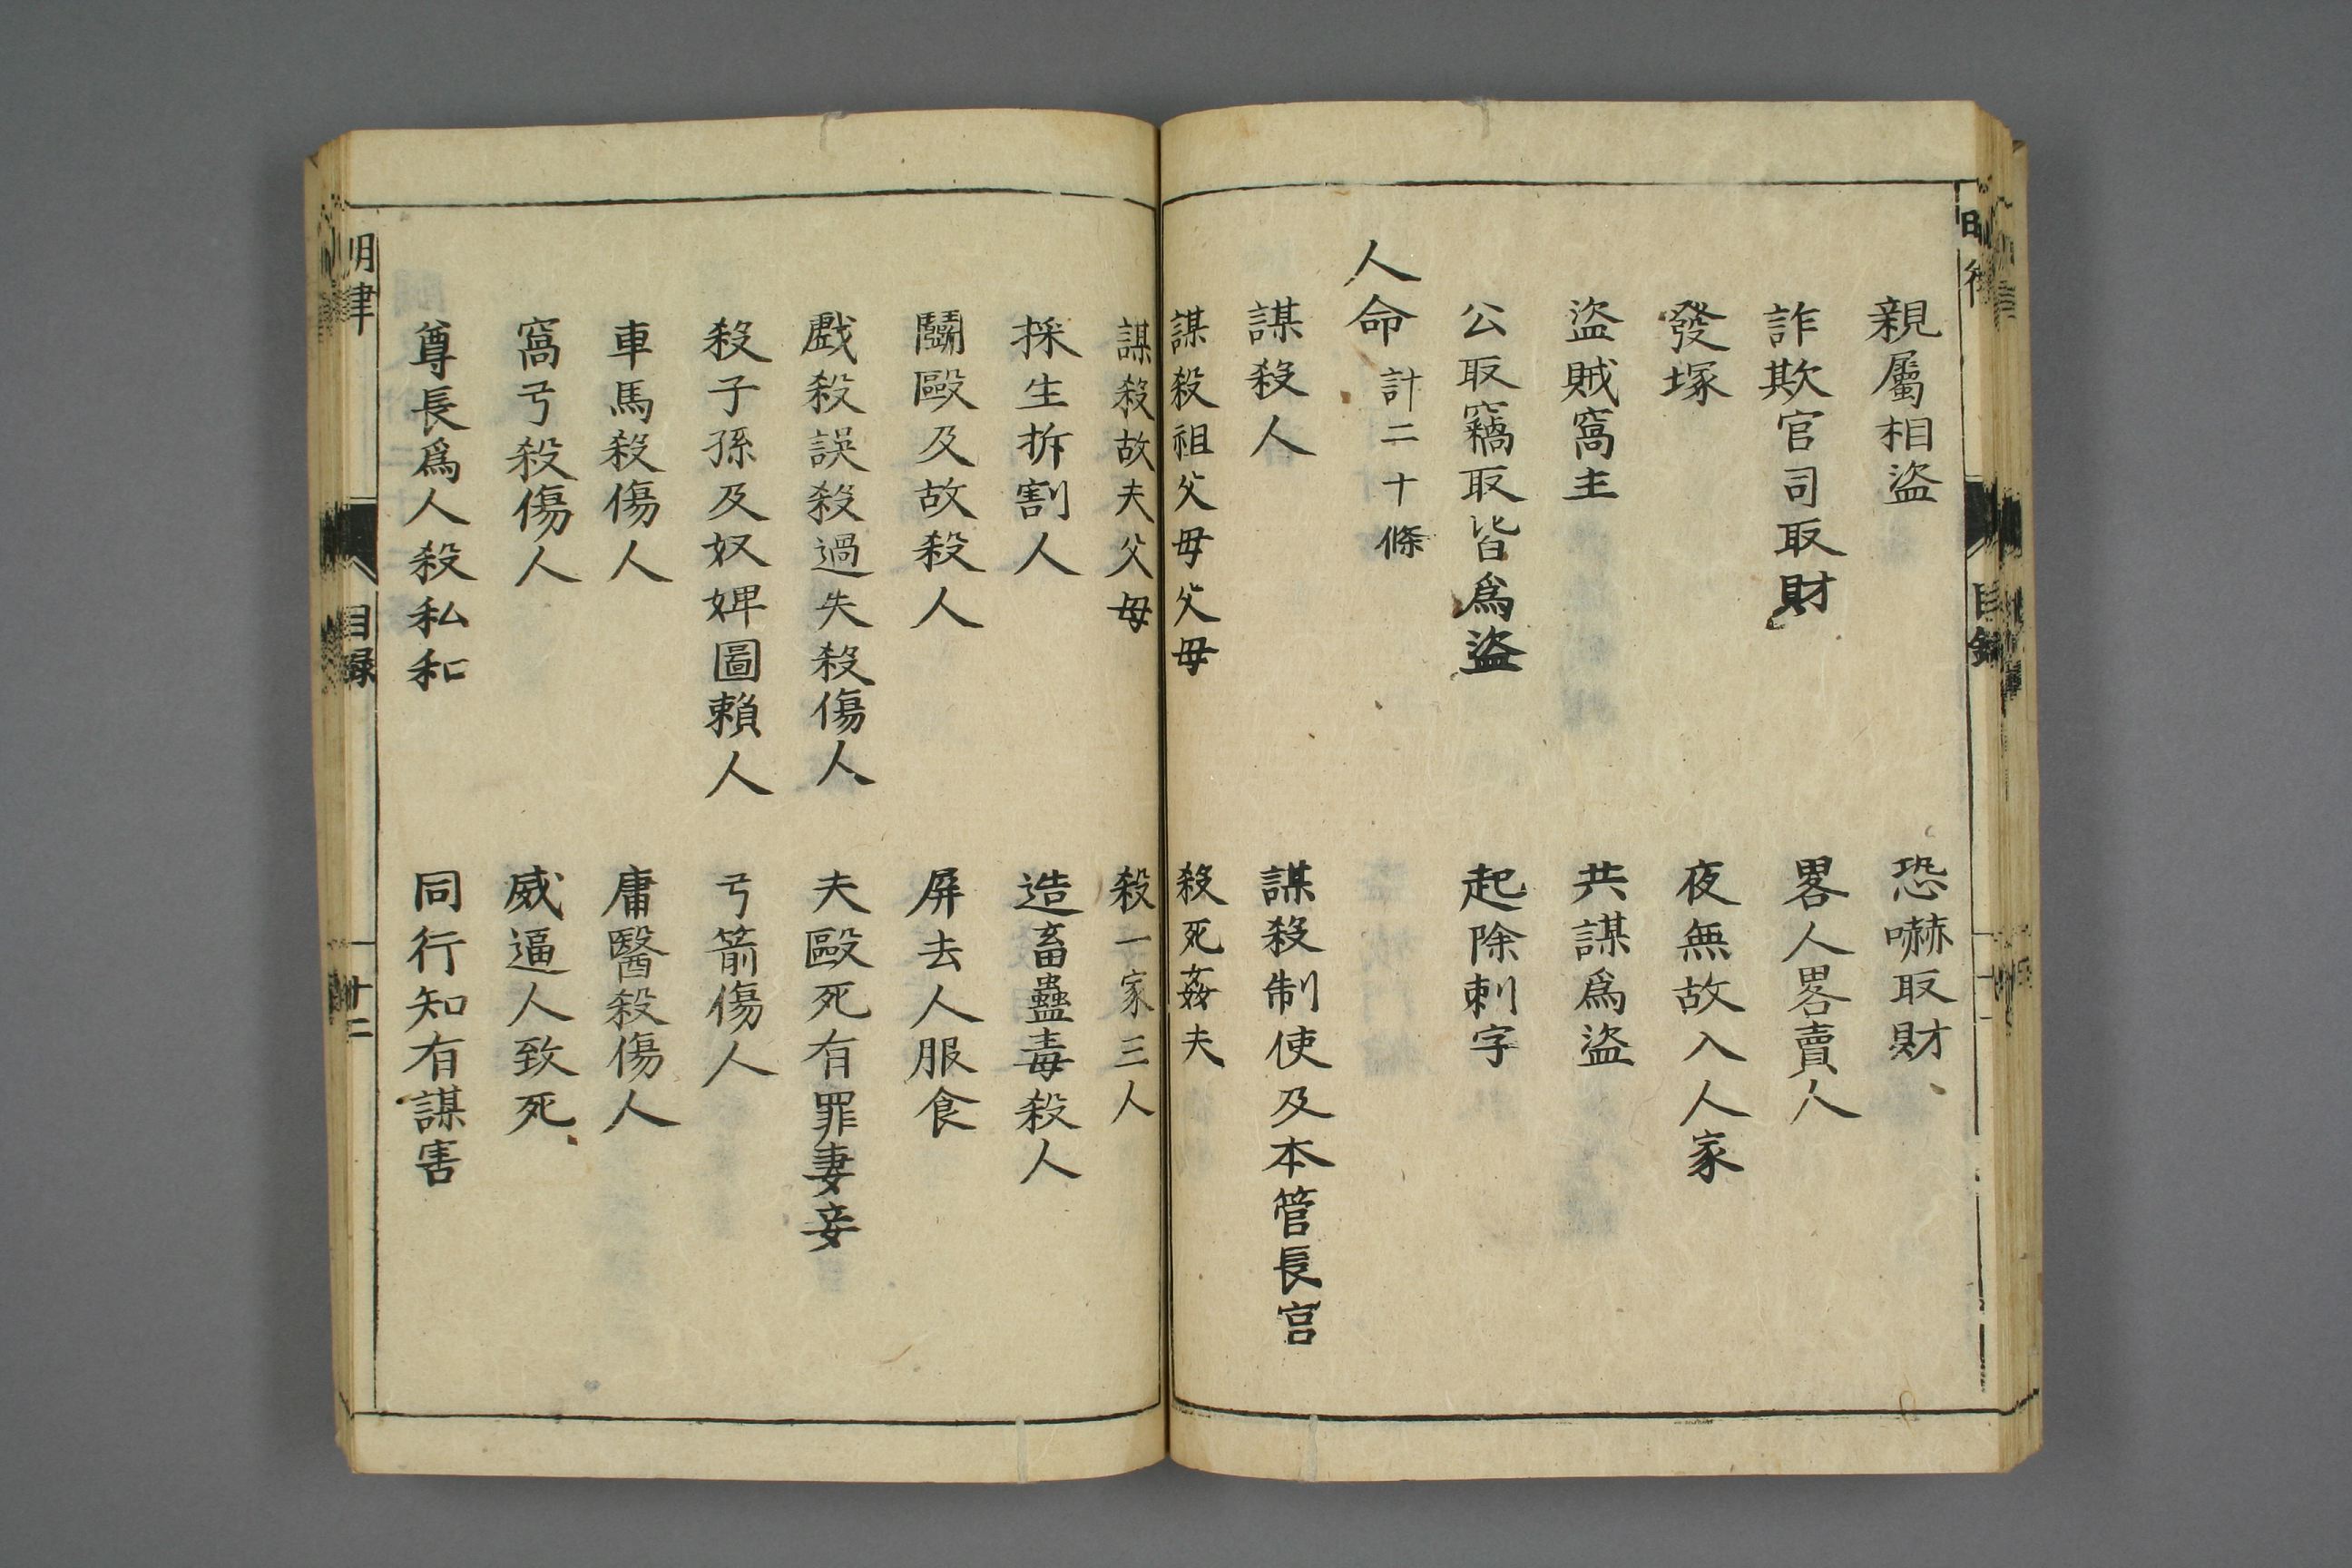 親屬相盜　恐嚇取財
詐欺官司取財　畧人畧賣人
發塚　夜無故入人家
盜賊窩主　共謀爲盜
公取竊取皆爲盜　起除刺字
人命計二十條
謀殺人　謀殺制使及本管長官
謀殺祖父母父母　殺死姦夫
謀殺故夫父母　殺一家三人
採生拆割人　造畜蠱毒殺人
鬪毆及故殺人　屏去人服食
戲殺誤殺過失殺傷人　夫毆死有罪妻妾
殺子孫及奴婢圖賴人　弓箭傷人
車馬殺傷人　庸醫殺傷人
窩弓殺傷人　威逼人致死
尊長爲人殺私和　同行知有謀害
明律　目録　十二